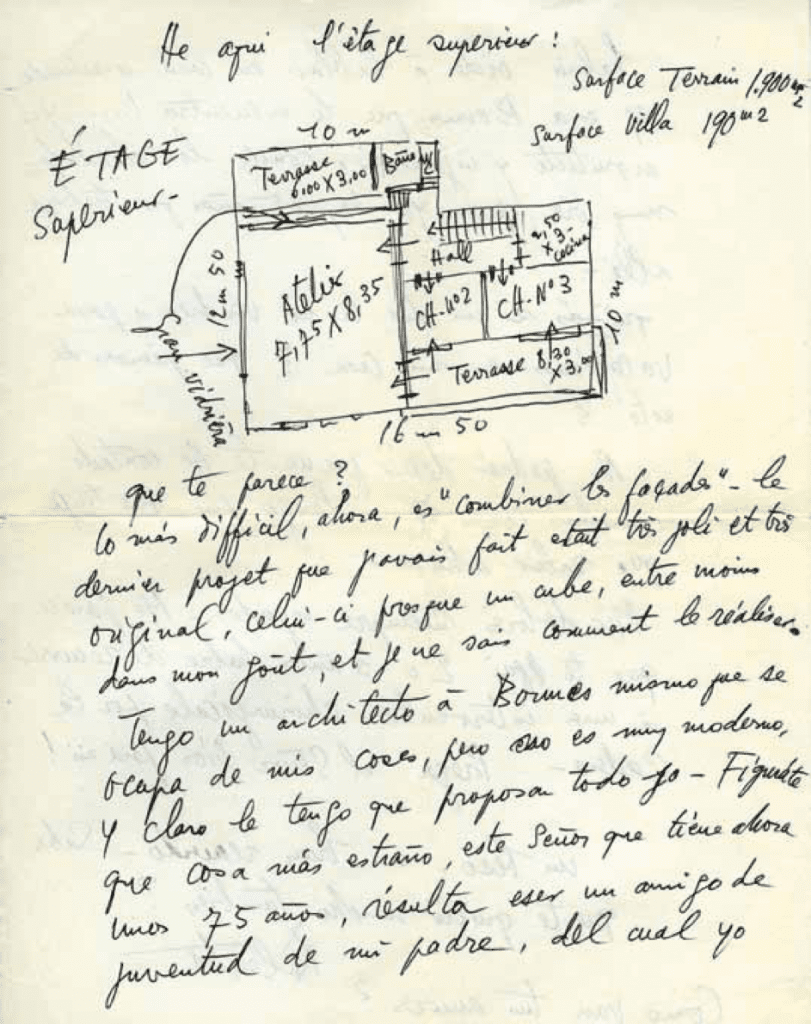 He aqui l'étage superieur!
Surface Terrain 1.900 m2
Surface Villa 190 m2
ÉTAGE
Superieur-
10 m
Terrasse
6,00 X 3,00
Baño
W
Hall
2,50
X 3-
cocina
Atelier
7,75 X 8,35
CH-Nº2
CH-Nº3
10 m
12 m 50
Gran vidriera
Terrasse 8,30
X 3,00
16 m 50
que te parece?
lo más difficil, ahora, es "combiner les façades" - le
dernier projet que j'avais fait etait très joli et très
original, celui-ci presque un cube, entre moins
dans mon goût, et je ne sais comment le réaliser.
Tengo un architecto à Bormes mismo que se
ocupa de mis coses, pero eso es muy moderno,
y claro le tengo que proposar todo yo - Figurate
que cosa más estraño, este Señor que tiene ahora
unos 75 años, résulta eser un amigo de
juventud de mi padre, del cual yo